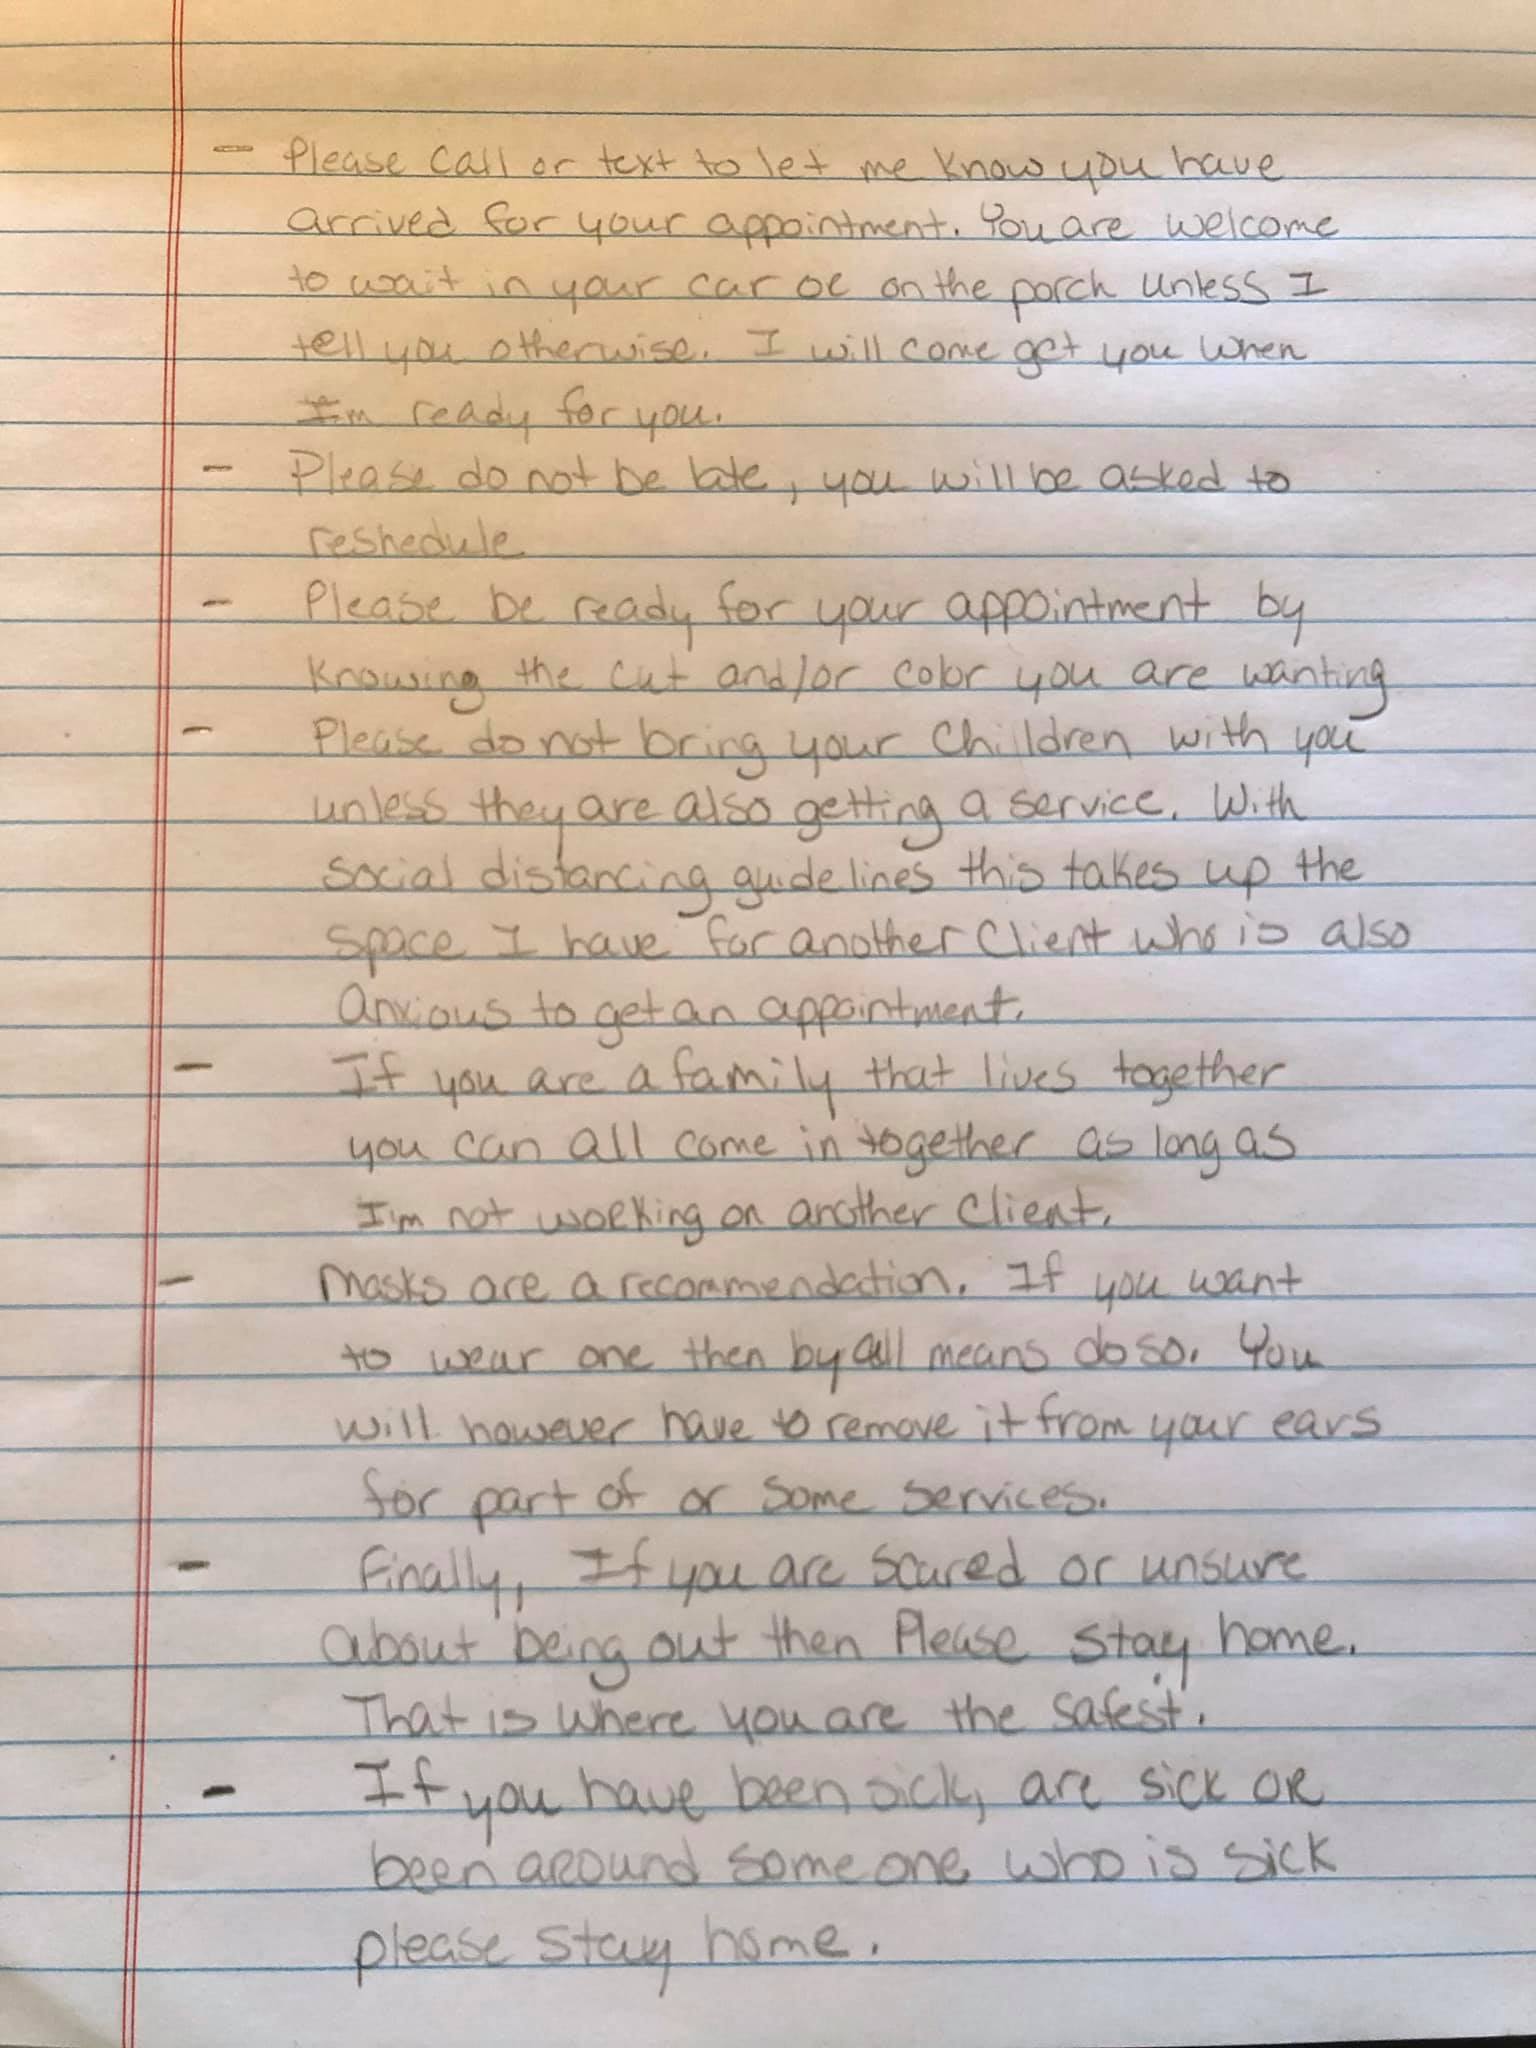 - Please Call or text to let me know you have
arrived for your appointment. You are welcome
to wait in your car or on the porch unless I
tell you otherwise. I will come get you when
I'm ready for you.
- Please do not be late, you will be asked to
reshedule
- Please be ready for your appointment by
knowing the cut and/or color you are wanting
- Please do not bring your Chilldren with you
unless they are also getting a service. With
social distancing guidelines this takes up the
space I have for another Client who is also
anxious to get an appointment.
- If you are a family that lives together
you can all come in together as long as
I'm not working on another Client.
- Masks are a recommendation. If you want
to wear one then by all means do so. You
will however have to remove it from your ears
for part of or some services.
- Finally, If you are scared or unsure
about being out then Please stay home.
That is where you are the safest.
- If you have been sick, are sick or
been around someone who is sick
please stay home.